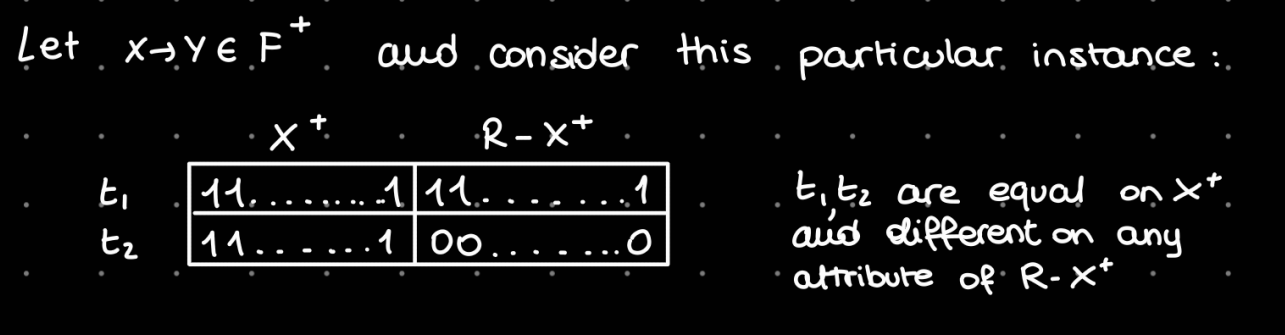 Let X→Y ∈ F⁺ and consider this particular instance:
X⁺ R-X⁺
t₁ 11.........1 11.......1 t₁,t₂ are equal on X⁺
t₂ 11.......1 00.......0 and different on any
attribute of R-X⁺